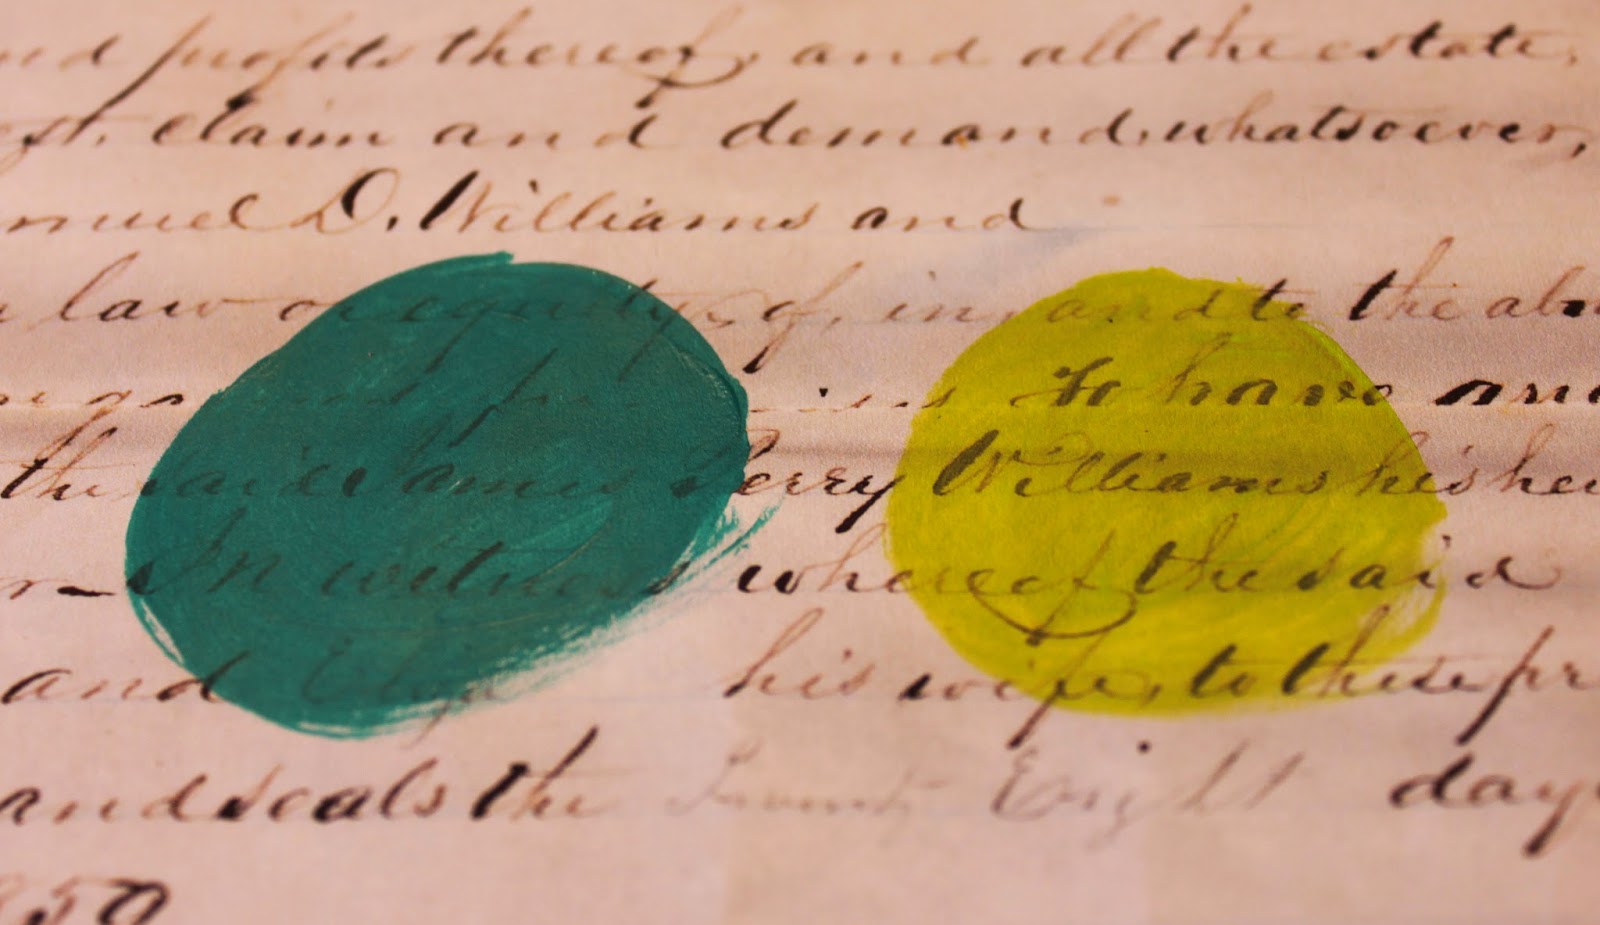 nd profits thereof, and all the estate,
est, claim and demand, whatsoever,
muel D. Williams and
law or equity, of, in, and to the abo
To have and
the said James Perry Williams his hei
In witness whereof the said
and Eliza his wife, to these pr
and seals the Twenty Eight day
850